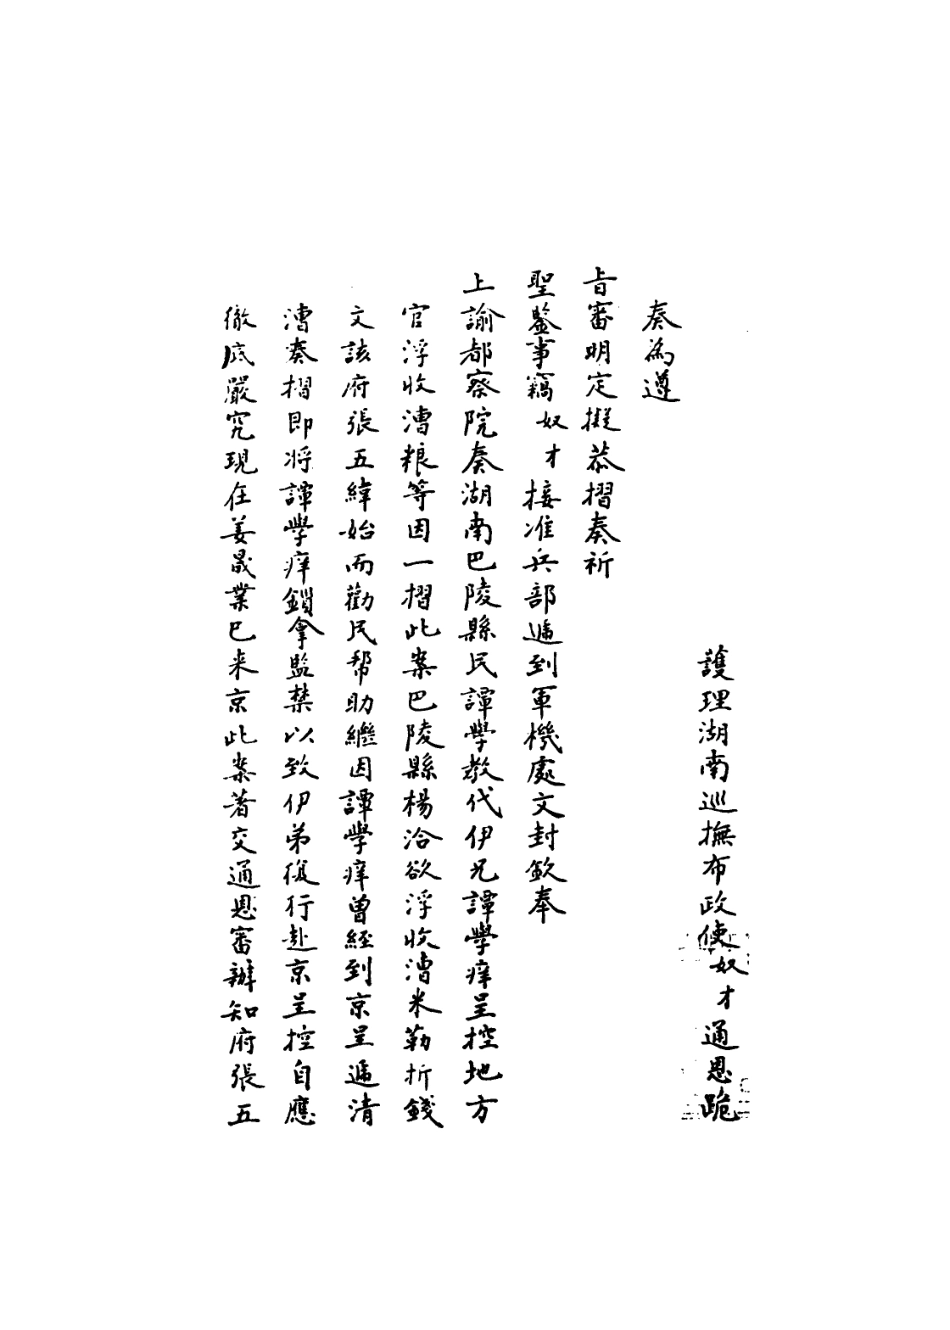 護理湖南巡撫布政使奴才通恩跪
奏為遵
旨審明定擬恭摺奏祈
聖鑒事竊奴才接准兵部遞到軍機處文封欽奉
上諭都察院奏湖南巴陵縣民譚學教代伊兄譚學庠呈控地方
官浮收漕粮等因一摺此案巴陵縣楊洽欲浮收漕米勒折錢
文該府張五緯始而勸民幫助繼因譚學庠曾經到京呈遞清
漕奏摺即將譚學庠鎖拿監禁以致伊弟復行赴京呈控自應
徹底嚴究現在姜晟業已来京此案著交通恩審辦知府張五